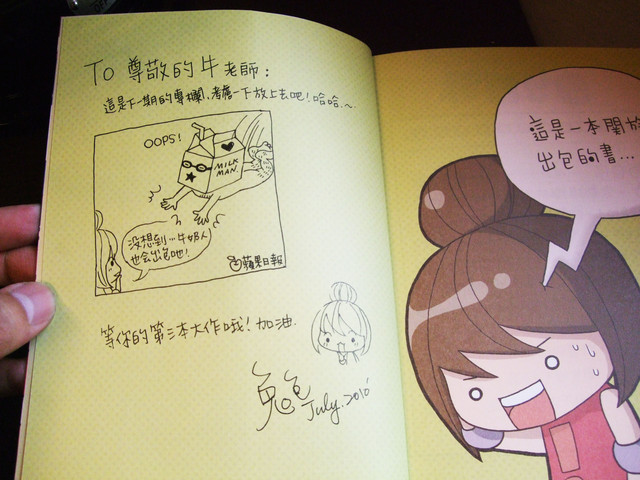 TO 尊敬的牛老師：
這是下一期的專欄，考慮一下放上去吧！哈哈～
OOPS!
MILK
MAN.
沒想到…牛奶人
也會出包吧！
蘋果日報
等你的第三本大作哦！加油.
兔包
July.2010
這是一本開放
出包的書…